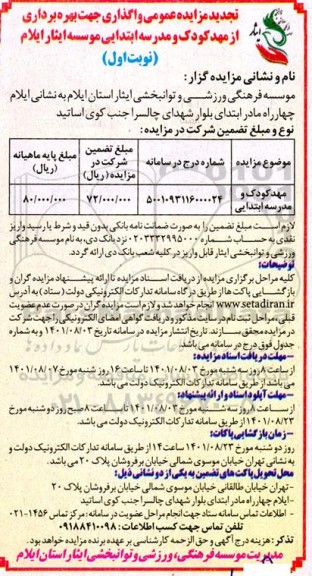 تجدید مزایده عمومی واگذاری جهت بهره برداری
از مهد کودک و مدرسه ابتدایی موسسه ایثار ایلام
(نوبت اول)
نام و نشانی مزایده گزار:
موسسه فرهنگی ورزشی و توانبخشی ایثار استان ایلام به نشانی ایلام
چهارراه مادر ابتدای بلوار شهدای چالسرا جنب کوی اساتید
نوع و مبلغ تضمین شرکت در مزایده:
موضوع مزایده | شماره درج در سامانه | مبلغ تضمین شرکت در مزایده (ریال) | مبلغ پایه ماهیانه (ریال)
مهد کودک و مدرسه ابتدایی | ۵۰۰۱۰۹۳۱۱۶۰۰۰۰۲۴ | ۷۲/۰۰۰/۰۰۰ | ۸۰/۰۰۰/۰۰۰
لازم است مبلغ تضمین را به صورت ضمانت نامه بانکی بدون قید و شرط یا رسید واریز
نقدی به حساب شماره ۰۲۰۳۳۳۲۹۹۵۰۰۰ نزد بانک دی، به نام موسسه فرهنگی
ورزشی و توانبخشی ایثار قابل واریز در کلیه شعب بانک دی ارائه گردد.
توضیحات:
کلیه مراحل برگزاری مزایده از دریافت اسناد مزایده تا ارائه پیشنهاد مزایده گران و
بازگشایی پاکت ها از طریق درگاه سامانه تدارکات الکترونیکی دولت (ستاد) به آدرس
www.setadiran.ir انجام خواهد شد و لازم است مزایده گران در صورت عدم عضویت
قبلی، مراحل ثبت نام در سایت مذکور و دریافت گواهی امضای الکترونیکی را جهت شرکت
در مزایده محقق سازند. تاریخ انتشار مزایده در سامانه تاریخ ۱۴۰۱/۰۸/۰۳ و به شماره
جدول فوق درج در سامانه می باشد.
-مهلت دریافت اسناد مزایده:
از ساعت ۸ روز سه شنبه مورخ ۱۴۰۱/۰۸/۰۳ تا ساعت ۱۶ روز شنبه مورخ ۱۴۰۱/۰۸/۰۷
می باشد از طریق سامانه تدارکات الکترونیک دولت می باشد.
-مهلت آپلود اسناد و ارائه پیشنهاد:
از ساعت ۸ روز سه شنبه مورخ ۱۴۰۱/۰۸/۰۳ تا ساعت ۸ صبح روز دوشنبه مورخ
۱۴۰۱/۰۸/۲۳ از طریق سامانه تدارکات الکترونیک دولت می باشد.
-زمان بازگشایی پاکات:
روز دوشنبه مورخ ۱۴۰۱/۰۸/۲۳ ساعت ۱۴ از طریق سامانه تدارکات الکترونیک دولت و
به نشانی تهران خیابان موسوی شمالی خیابان برفروشان پلاک ۲۰ می باشد.
محل تحویل پاکت های تضمین به یکی از دو نشانی ذیل:
-تهران خیابان طالقانی خیابان موسوی شمالی خیابان برفروشان پلاک ۲۰
-ایلام چهارراه مادر ابتدای بلوار شهدای چالسرا جنب کوی اساتید
- اطلاعات تماس سامانه ستاد جهت انجام مراحل عضویت در سامانه: مرکز تماس ۱۴۵۶-۰۲۱
تلفن تماس جهت کسب اطلاعات: ۰۹۱۸۸۴۱۰۰۹۸
تذکر: هزینه درج آگهی و حق الزحمه کارشناسی بر عهده برنده مزایده خواهد بود.
مدیریت موسسه فرهنگی، ورزشی و توانبخشی ایثار استان ایلام